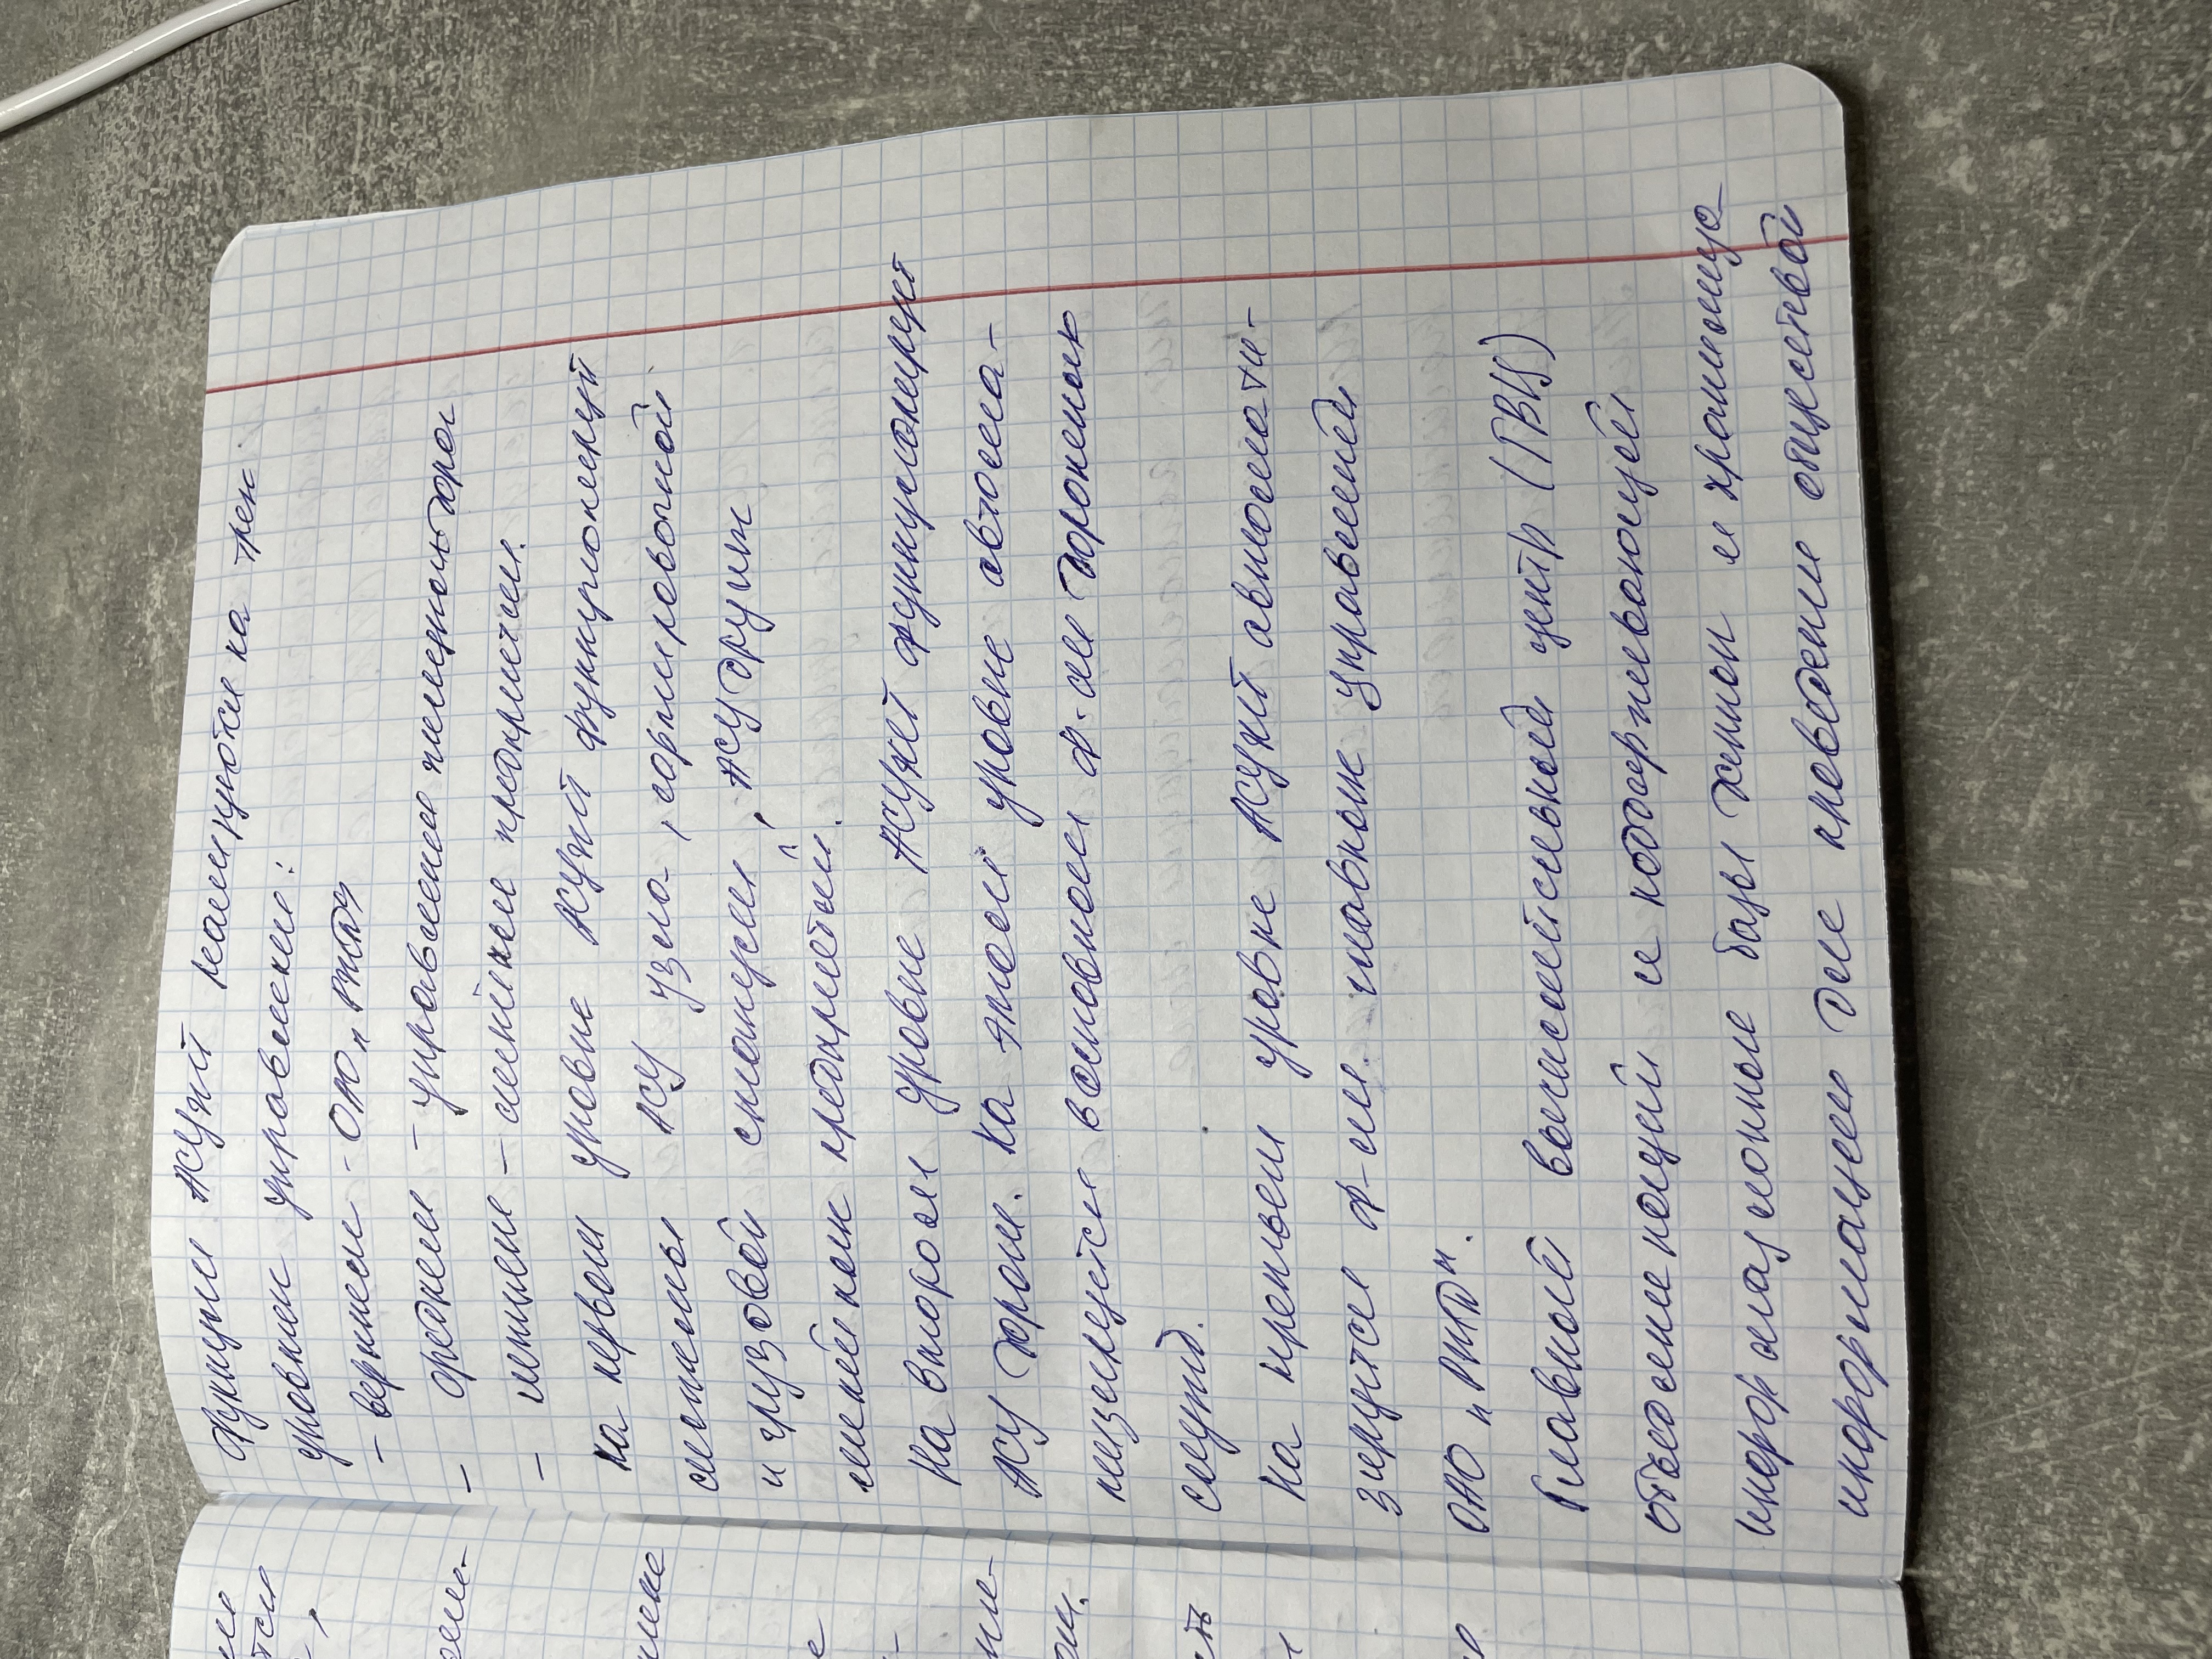 Функции АСУЖТ реализуются на трех
уровнях управления:
- верхнем - ОАО „РЖД"
- среднем - управления железных дорог
- нижнем - линейные предприятия.
На первом уровне АСУЖТ функционируют
системы АСУ узла, сортировочной
и грузовой станции, АСУ других
линейных предприятий.
На втором уровне АСУЖТ функционирует
АСУ дорог. На этом уровне автома-
тизируются в основном ф-ии дорожных
служб.
На третьем уровне АСУЖТ автомати-
зируются ф-ии главных управлений
ОАО „РЖД".
Главный вычислительный центр (ГВЦ)
отъединяющий и поддерживающий
информационные базы данных и хранимую
информацию для проведения отцествой
ются
ость